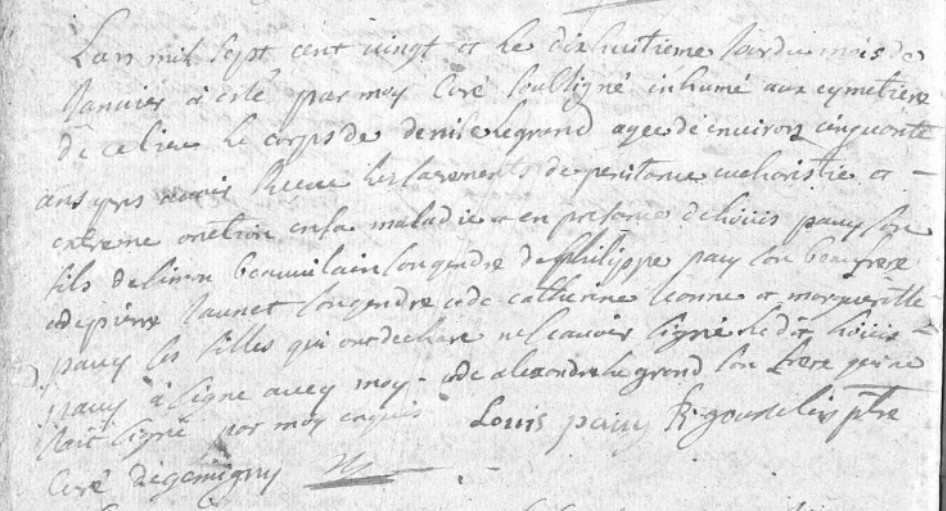 Lan mil sept cent vingt et le dixhuitieme Jardu mois de
Janvier à esté par moy Curé soussigné inhumé aux cymetiere
de ce lieu le corps de denise legrand agee de environ cinquante
ans apres avoir Receue les sacrements de penitance eucharistie et
extreme onction en sa maladie et en presance de Loüis pauy son
fils de simon beauvilain son gendre de philippe pauy son beaufrere
et de pierre Jaunet son gendre et de catherine et margueritte
pauy ses filles qui ont declaré ne scauoir signé le dit Loüis
pauy à signe auecq moy et de alexandre le grand son frere qui ne
scait signé par moy enquis Louis pauy R gourdelis ptre
Curé de gemigny